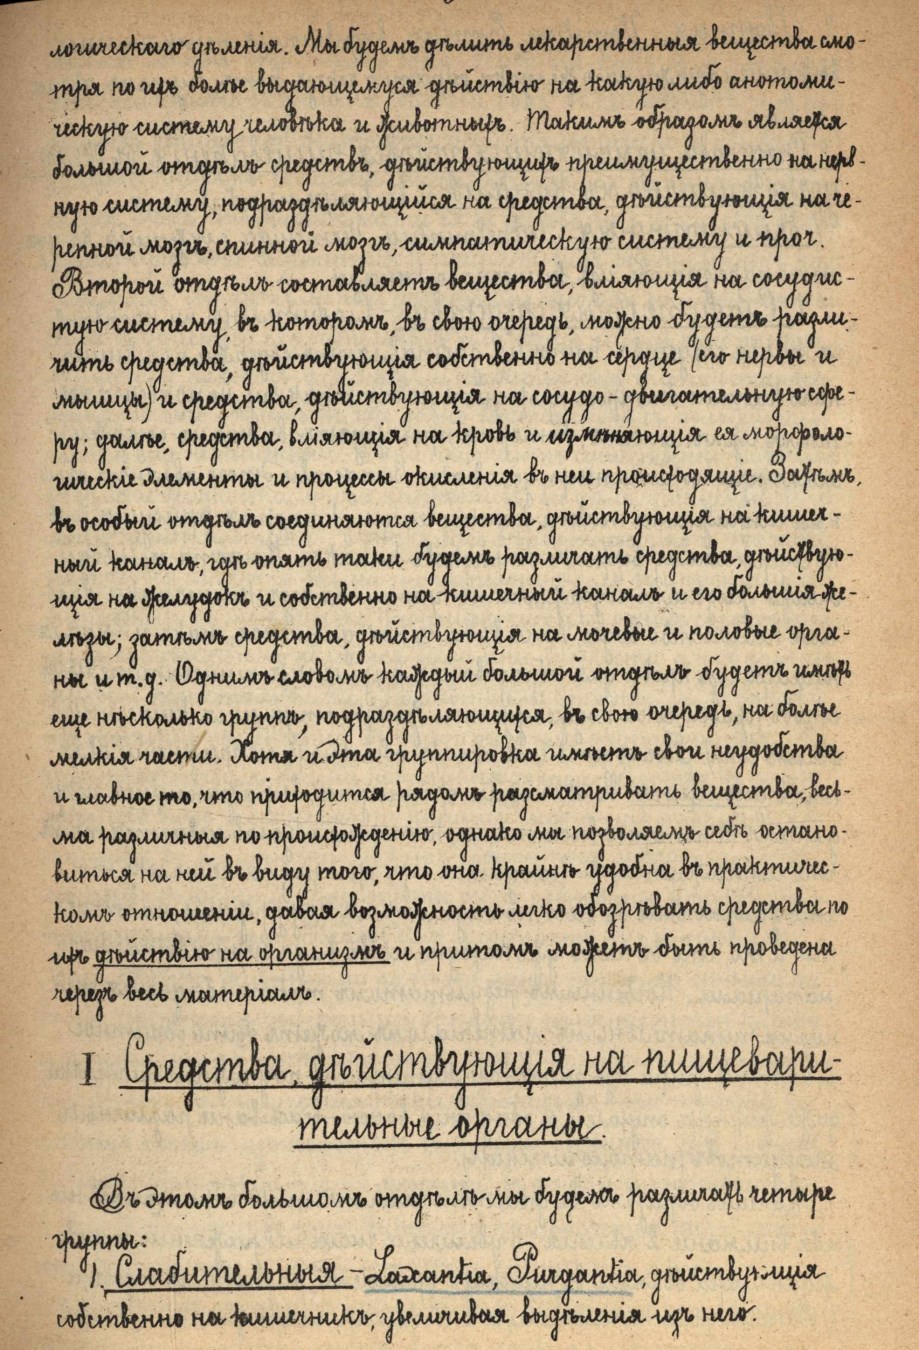 логическаго дѣленія. Мы будемъ дѣлить лекарственныя вещества смо-
тря по ихъ болѣе выдающемуся дѣйствію на какую либо анотоми-
ческую систему человѣка и животныхъ. Такимъ образомъ является
большой отдѣлъ средствъ, дѣйствующихъ преимущественно на нерв-
ную систему, подраздѣляющійся на средства, дѣйствующія на че-
репной мозгъ, спинной мозгъ, симпатическую систему и проч.
Второй отдѣлъ составляетъ вещества, вліяющія на сосудис-
тую систему, въ которомъ, въ свою очередь, можно будетъ разли-
чить средства, дѣйствующія собственно на сердце (его нервы и
мышцы) и средства, дѣйствующія на сосудо-двигательную сфе-
ру; далѣе, средства, вліяющія на кровь и измѣняющія ея морфоло-
гическіе элементы и процессы окисленія въ ней происходящіе. Затѣмъ,
въ особый отдѣлъ соединяются вещества, дѣйствующія на кишеч-
ный каналъ, гдѣ опять таки будемъ различать средства, дѣйствую-
щія на желудокъ и собственно на кишечный каналъ и его большія же-
лѣзы; затѣмъ средства, дѣйствующія на мочевые и половые орга-
ны и т.д. Однимъ словомъ каждый большой отдѣлъ будетъ имѣть
еще нѣсколько группъ, подраздѣляющихся, въ свою очередь, на болѣе
мелкія части. Хотя и эта группировка имѣетъ свои неудобства
и главное то, что приходится рядомъ разсматривать вещества, весь-
ма различныя по происхожденію, однако мы позволяемъ себѣ остано-
виться на ней въ виду того, что она крайнѣ удобна въ практичес-
комъ отношеніи, давая возможность легко обозрѣвать средства по
ихъ дѣйствію на организмъ и притомъ можетъ быть проведена
черезъ весь матеріалъ.
I Средства, дѣйствующія на пищевари-
тельные органы.
Въ этомъ большомъ отдѣлѣ мы будемъ различать четыре
группы:
1. Слабительныя – Laxantia, Purgantia, дѣйствующія
собственно на кишечникъ, увеличивая выдѣленія изъ него.